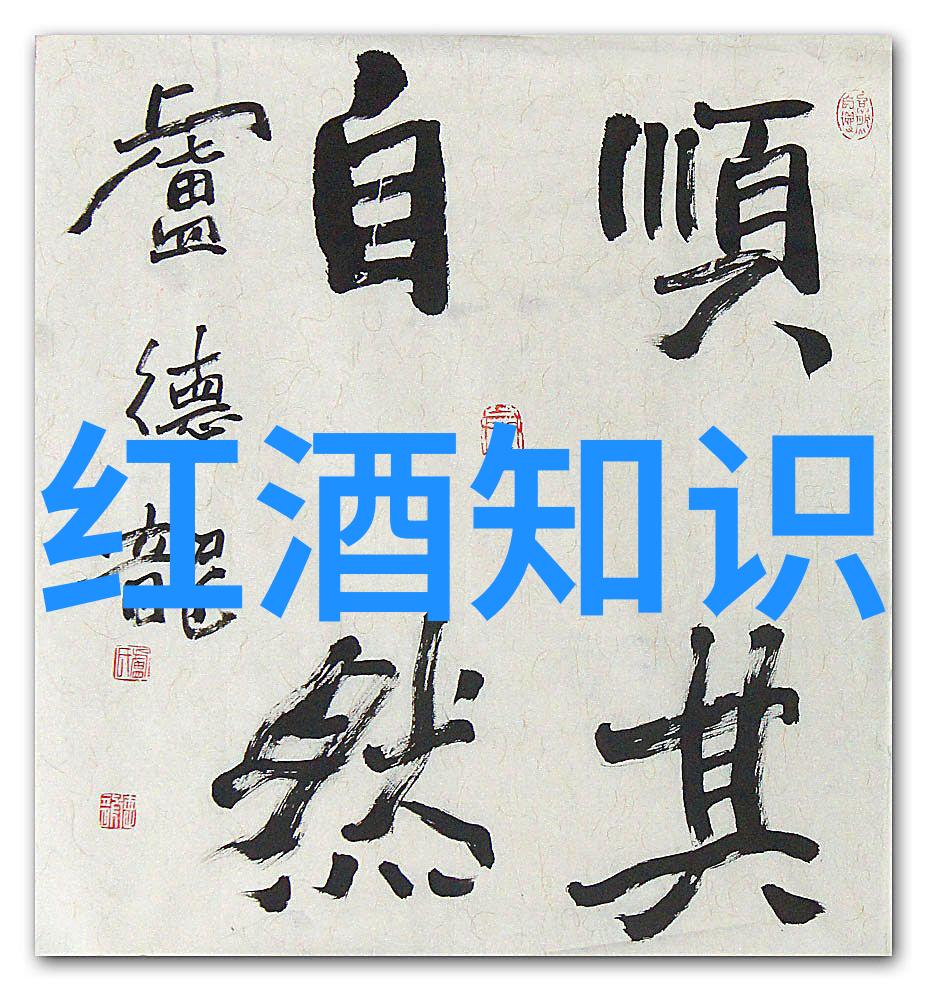 順其
自然
盧德龍
红酒知识